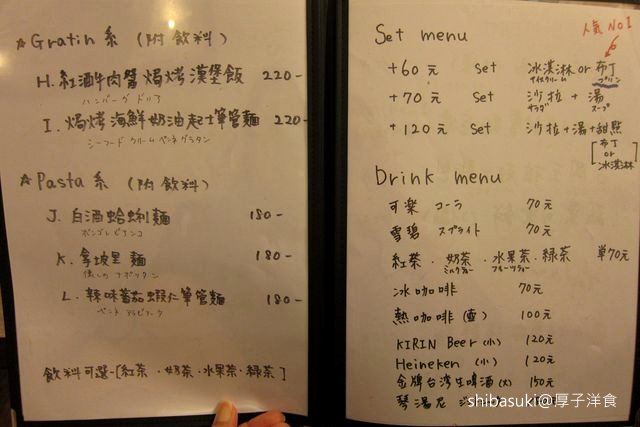 ☆Gratin系 (附飲料)
H. 紅酒牛肉醬焗烤漢堡飯 220-
ハンバーグ ドリア
I. 焗烤海鮮奶油起士筆管麵 220-
シーフード クリーム ペンネグラタン
☆Pasta系 (附飲料)
J. 白酒蛤蜊麵 180-
ボンゴレビアンコ
K. 拿坡里麵 180-
懐しの ナポリタン
L. 辣味蕃茄蝦仁筆管麵 180-
ペンネ アラビアータ
飲料可選-[紅茶・奶茶・水果茶・綠茶]
Set menu
人気 NO1
+60元 Set 冰淇淋 or 布丁
アイスクリーム プリン
+70元 Set 沙拉 + 湯
サラダ スープ
+120元 Set 沙拉+湯+甜點
[布丁 or 冰淇淋]
Drink menu
可樂 コーラ 70元
雪碧 スプライト 70元
紅茶・奶茶・水果茶・綠茶 単70元
ミルクティー フルーツティー
冰咖啡 70元
熱咖啡(壺) 100元
KIRIN Beer (小) 120元
Heineken (小) 120元
金牌台湾生啤酒(大) 150元
琴湯尼
shibasuki@厚子洋食